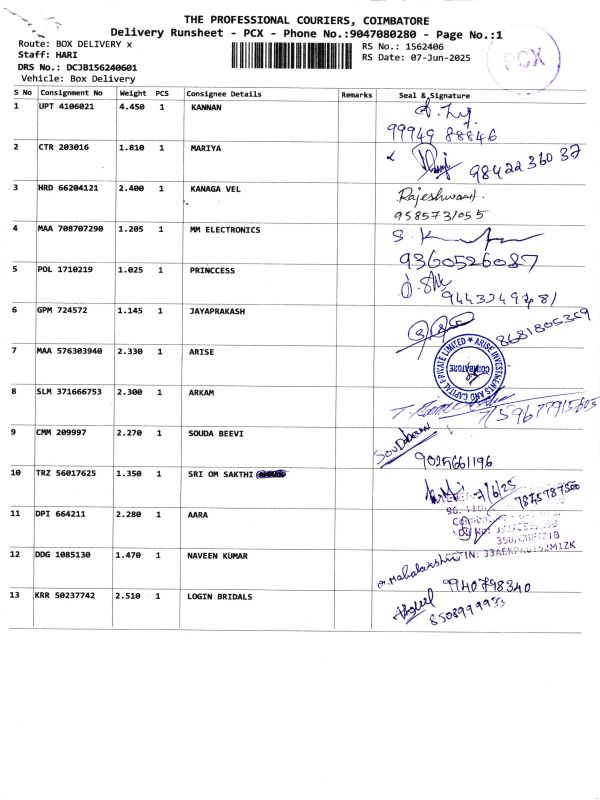 THE PROFESSIONAL COURIERS, COIMBATORE
Delivery Runsheet - PCX - Phone No.:9047080280 - Page No.:1
Route: BOX DELIVERY x
Staff: HARI
DRS No.: DCJB156240601
Vehicle: Box Delivery
RS No.: 1562406
RS Date: 07-Jun-2025
PCX
S No Consignment No Weight PCS Consignee Details Remarks Seal & Signature
1 UPT 4106021 4.450 1 KANNAN
99949 88846
2 CTR 203016 1.810 1 MARIYA
98422 36037
3 HRD 66204121 2.400 1 KANAGA VEL Rajeshwari.
9585731055
4 MAA 708707290 1.205 1 MM ELECTRONICS
9360526087
5 POL 1710219 1.025 1 PRINCCESS
6 GPM 724572 1.145 1 JAYAPRAKASH
8681805359
7 MAA 576303940 2.330 1 ARISE
ARISE INVESTMENTS AND CAPITAL PRIVATE LIMITED ★
COIMBATORE
8 SLM 371666753 2.300 1 ARKAM
9 CMM 209997 2.270 1 SOUDA BEEVI
9025661196
10 TRZ 56017625 1.350 1 SRI OM SAKTHI
7/6/25
11 DPI 664211 2.280 1 AARA
12 DDG 1085130 1.470 1 NAVEEN KUMAR
9940798340
13 KRR 50237742 2.510 1 LOGIN BRIDALS